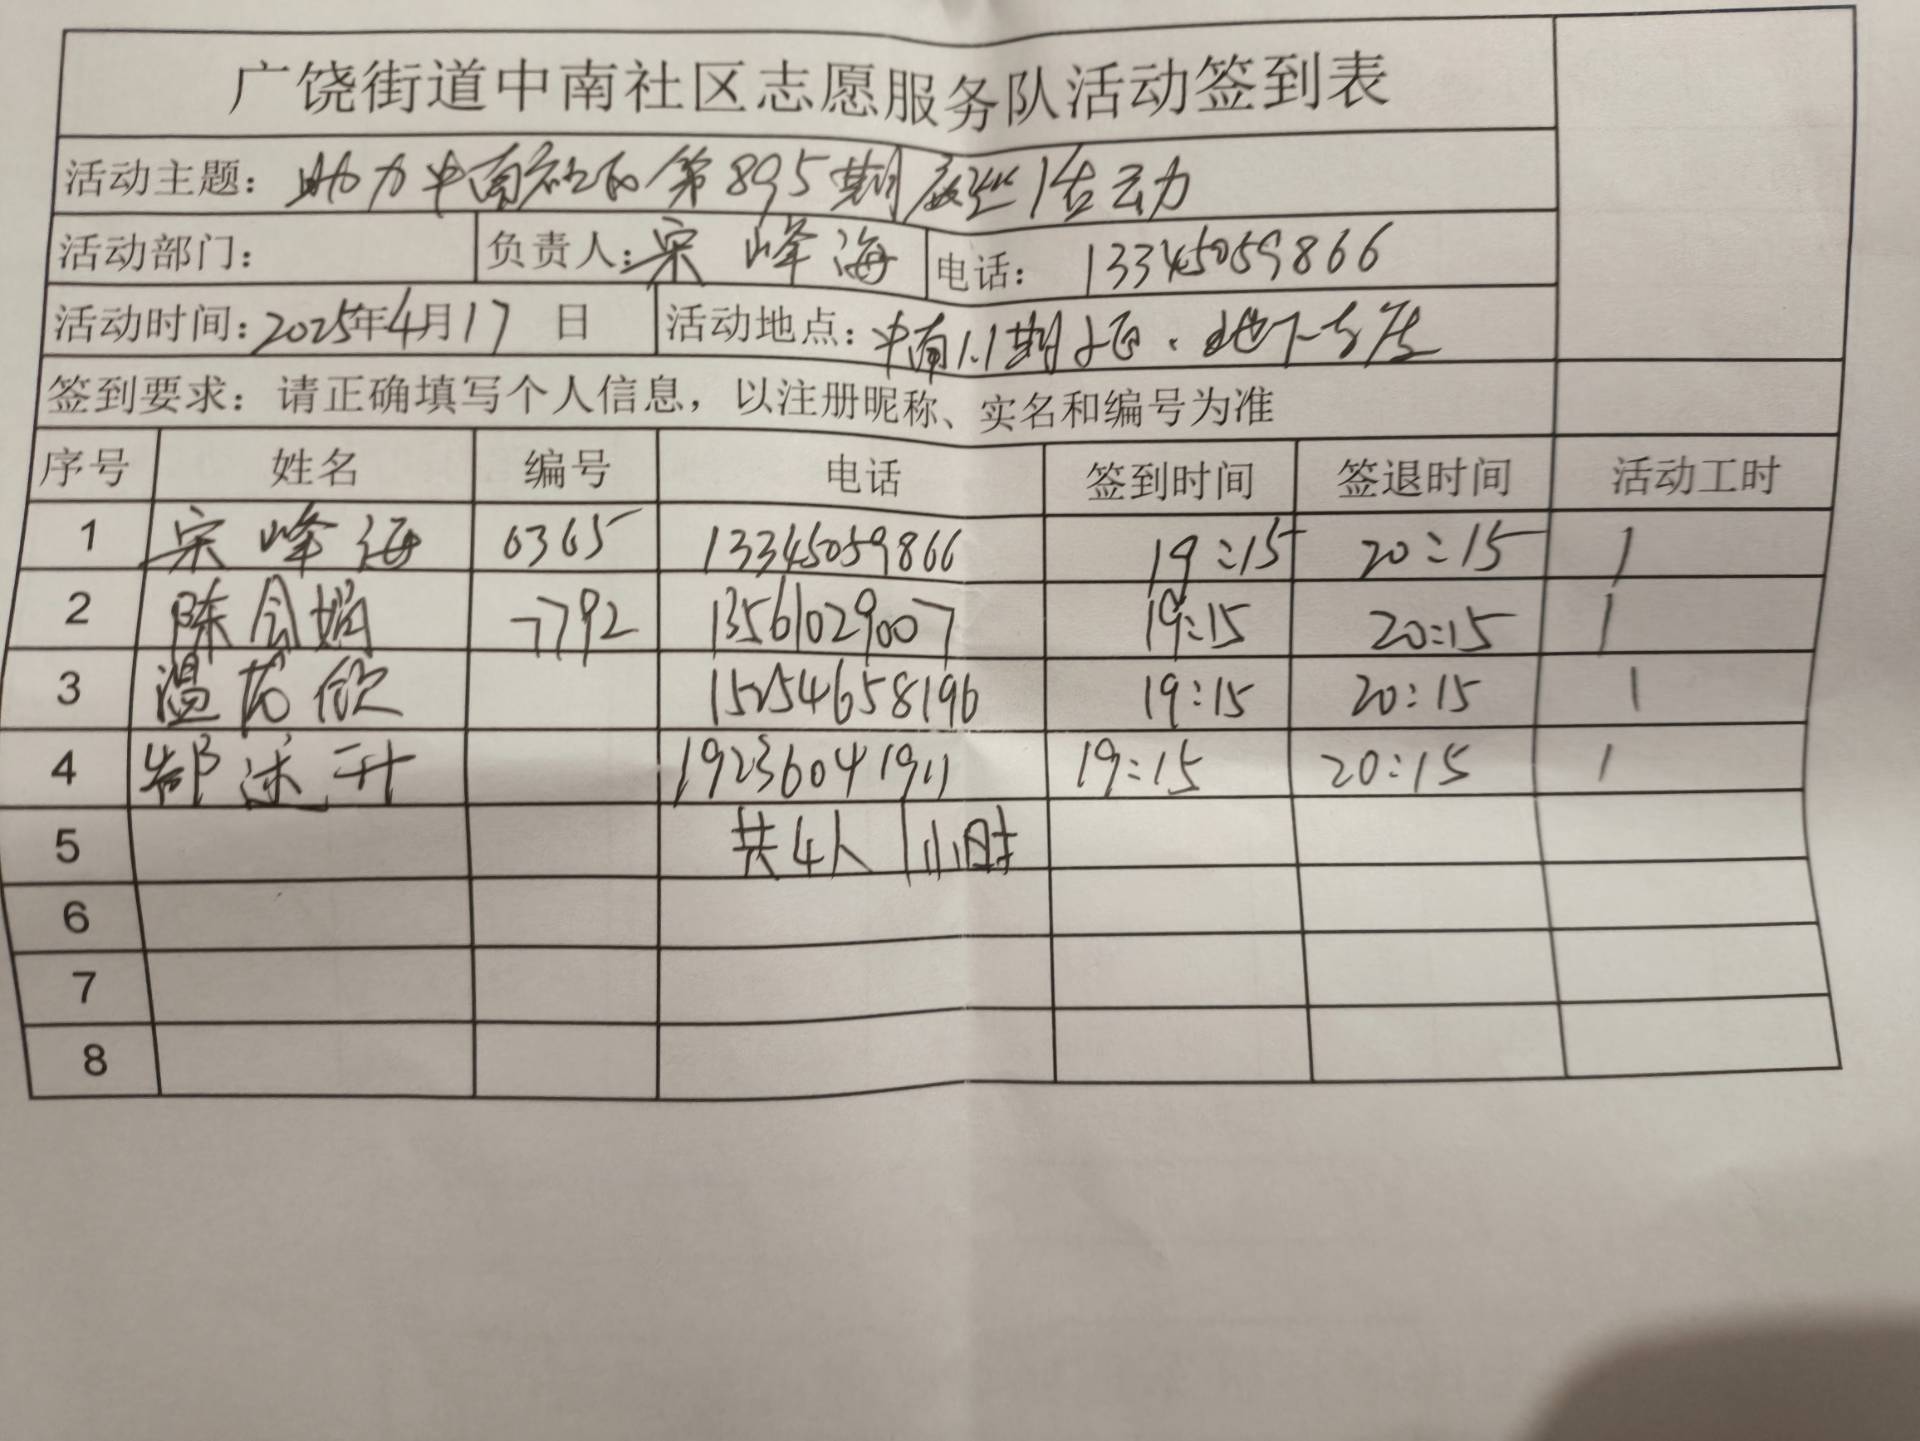 广饶街道中南社区志愿服务队活动签到表
活动主题：助力中南社区第895期夜巡活动
活动部门： 负责人：宋峰海 电话：13345059866
活动时间：2025年4月17日 活动地点：中南1.1期小区、地下车库
签到要求：请正确填写个人信息，以注册昵称、实名和编号为准
序号 姓名 编号 电话 签到时间 签退时间 活动工时
1 宋峰海 0365 13345059866 19:15 20:15 1
2 陈会娟 7792 13561029007 19:15 20:15 1
3 温 欣 15254658196 19:15 20:15 1
4 郗述升 19236041911 19:15 20:15 1
5 共4人 1小时
6
7
8